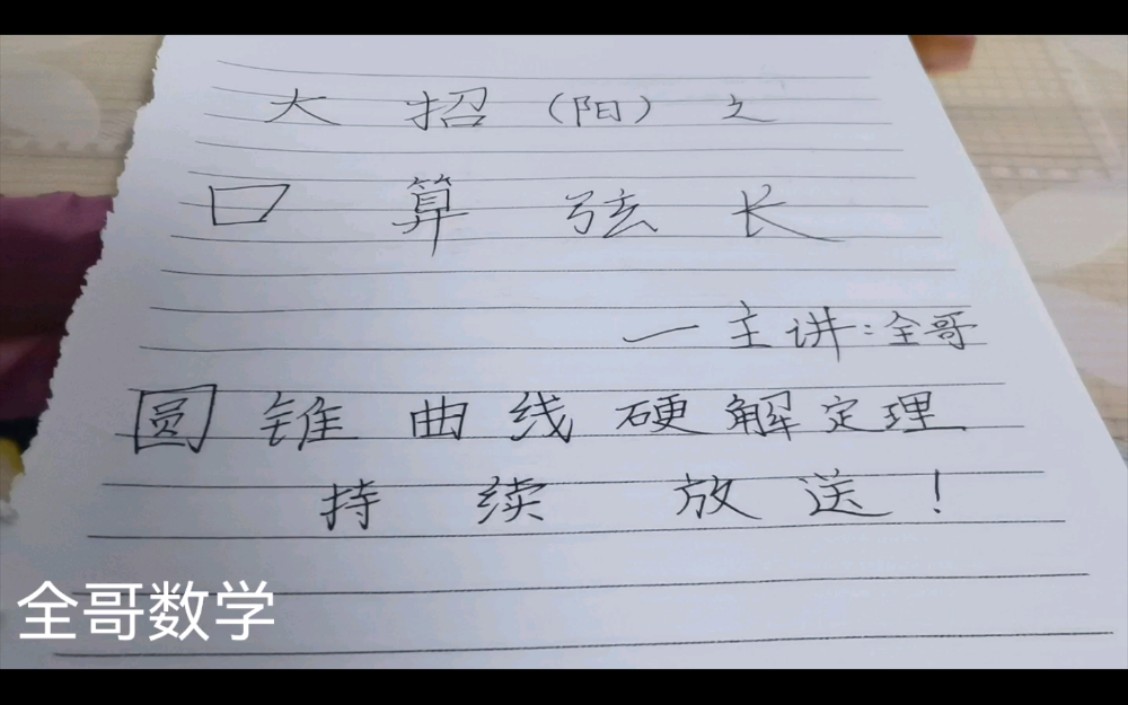 大招（阳）之
口算弦长
一主讲：全哥
圆锥曲线硬解定理
持续放送！
全哥数学